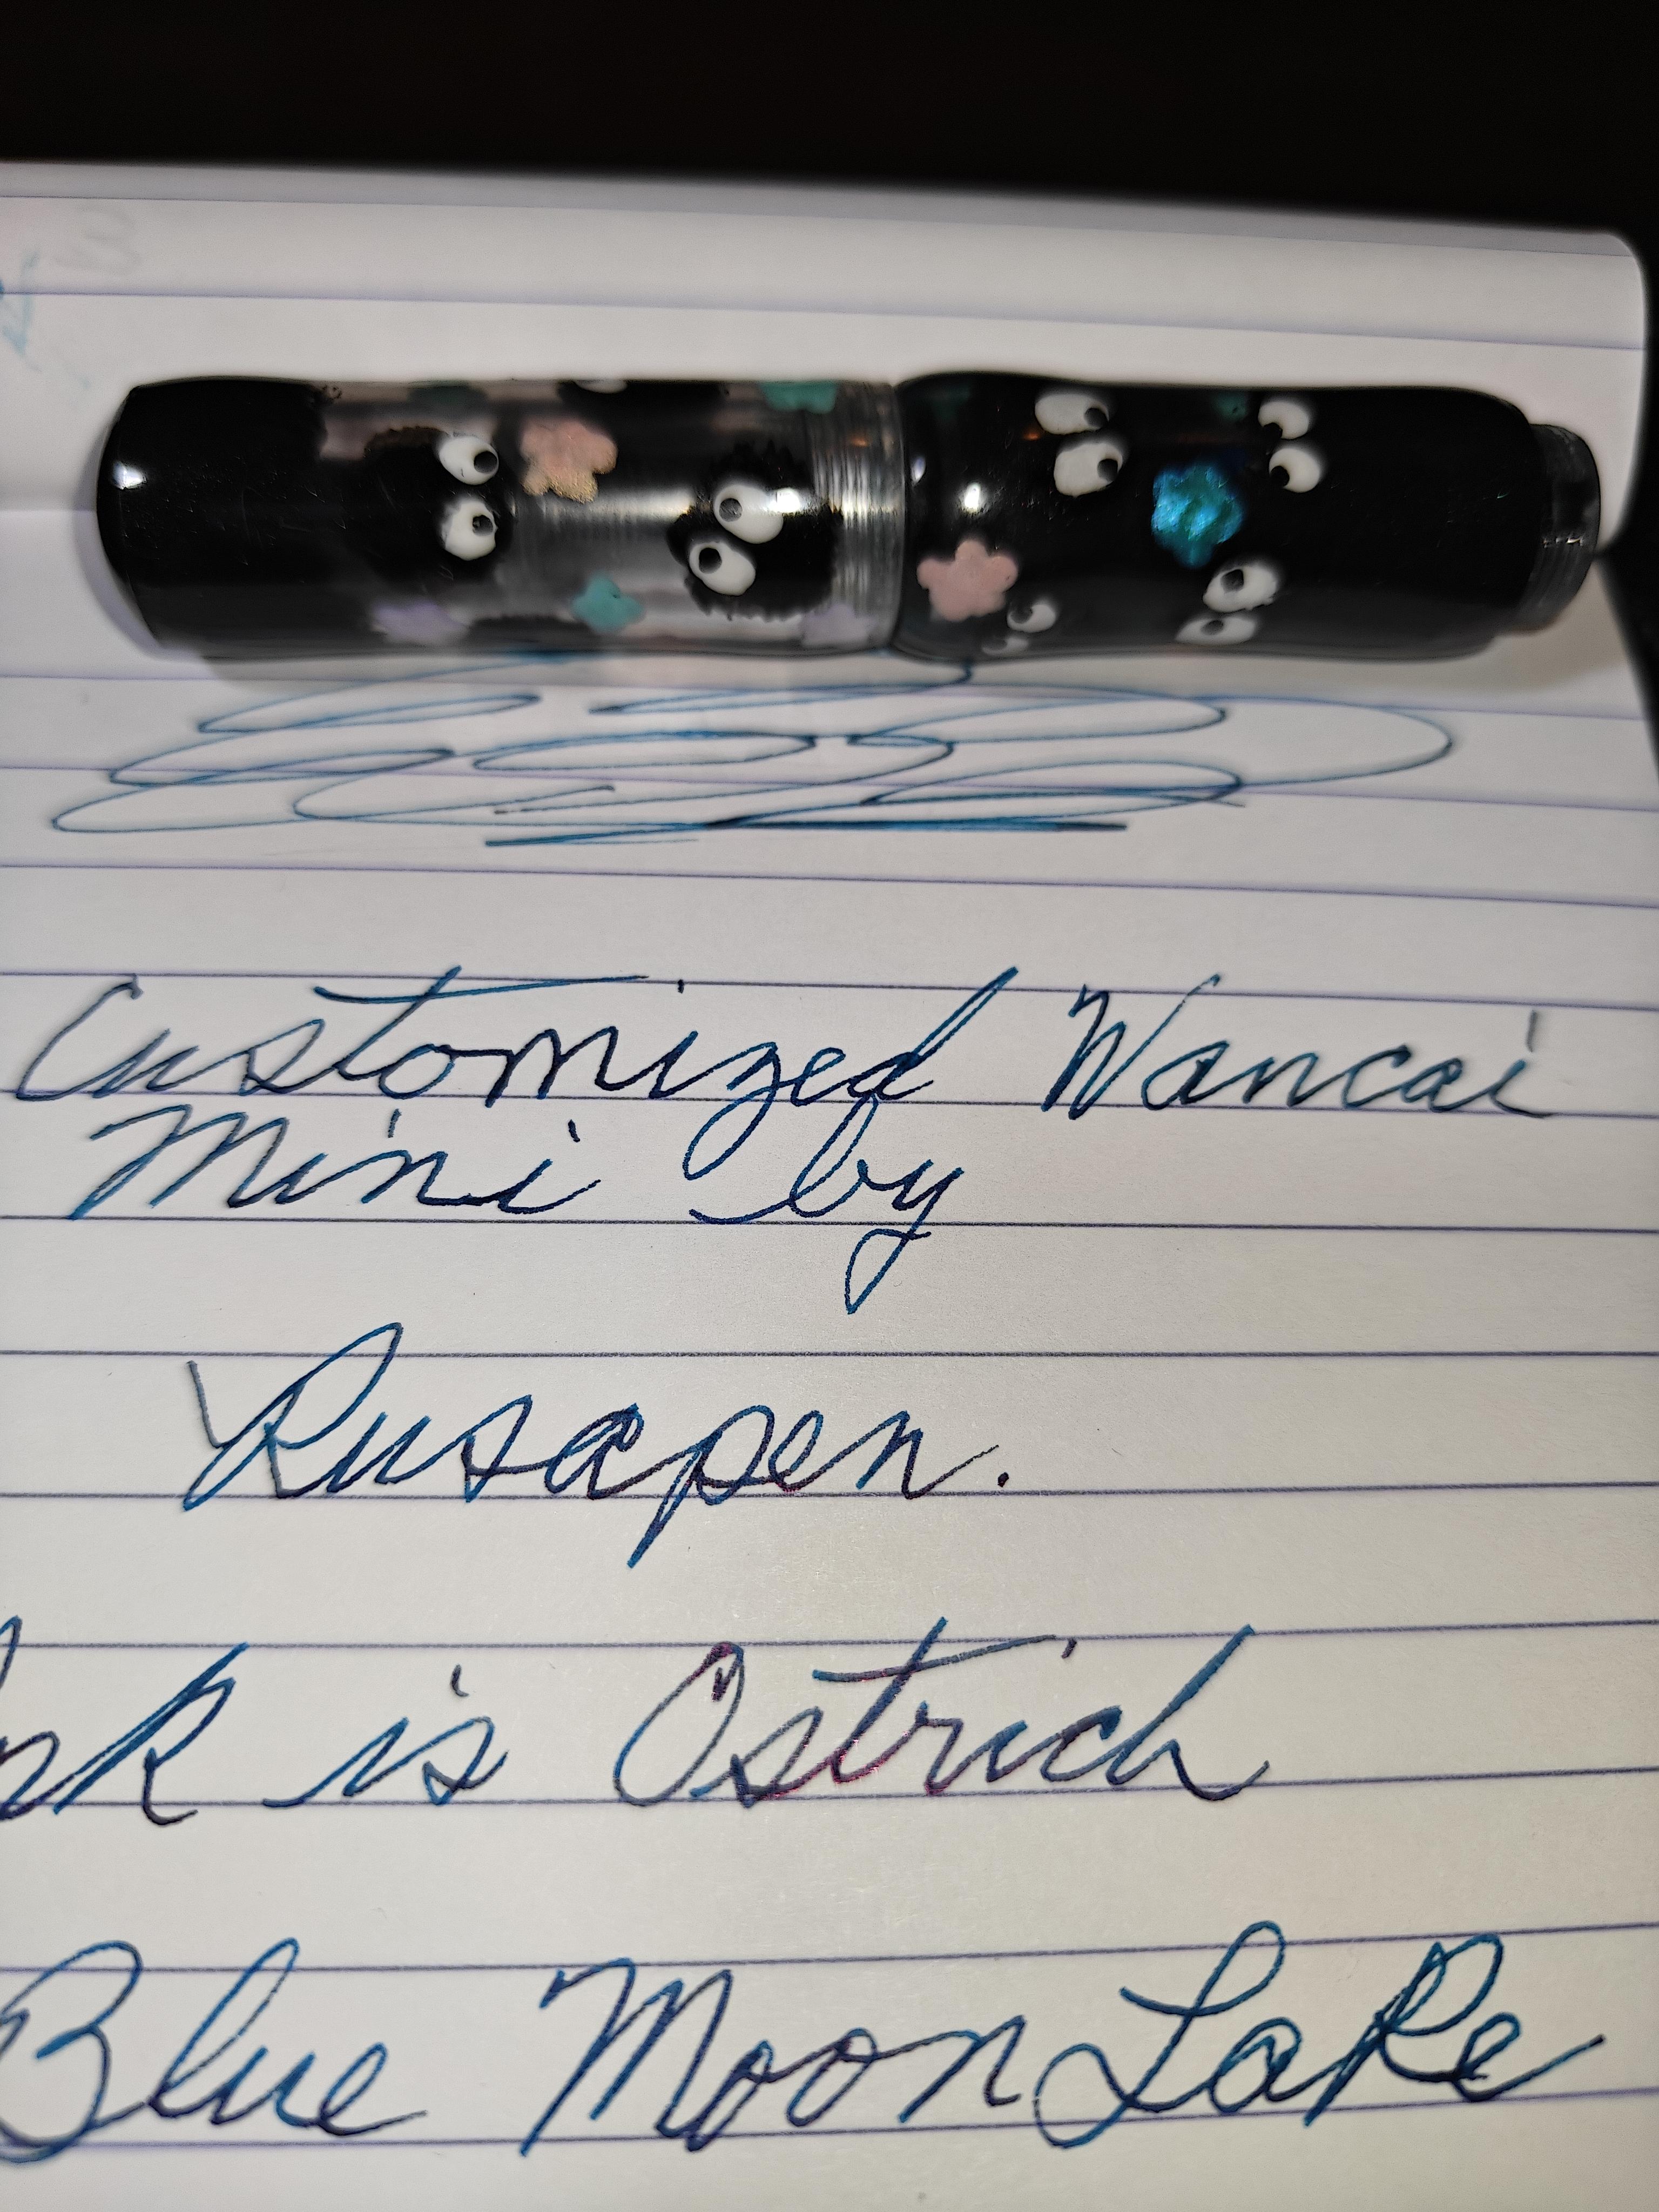 Customized Wancai
Mini by
Rusapen.
Ink is Ostrich
Blue Moon Lake